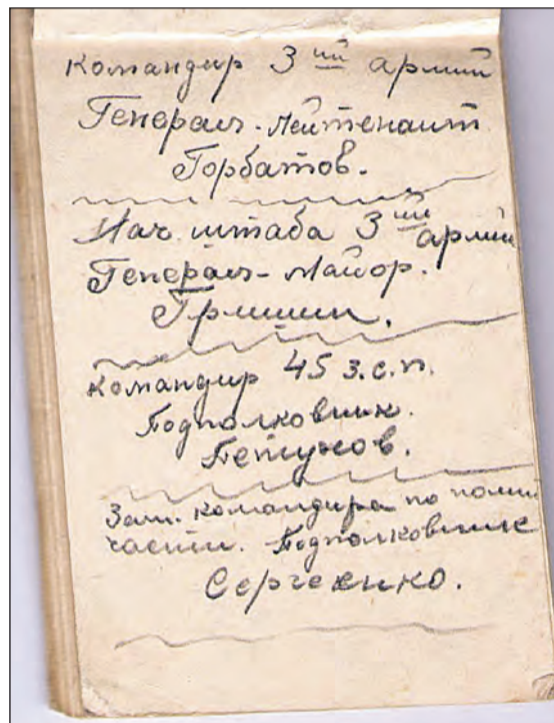 Командир 3ий армий
Генерал-Лейтенант
Горбатов.
Нач. штаба 3ий армий
Генерал-Майор.
Гришин.
Командир 45 з.с.п.
Подполковник.
Петухов.
Зам. командира по полит
части. Подполковник
Сергеенко.